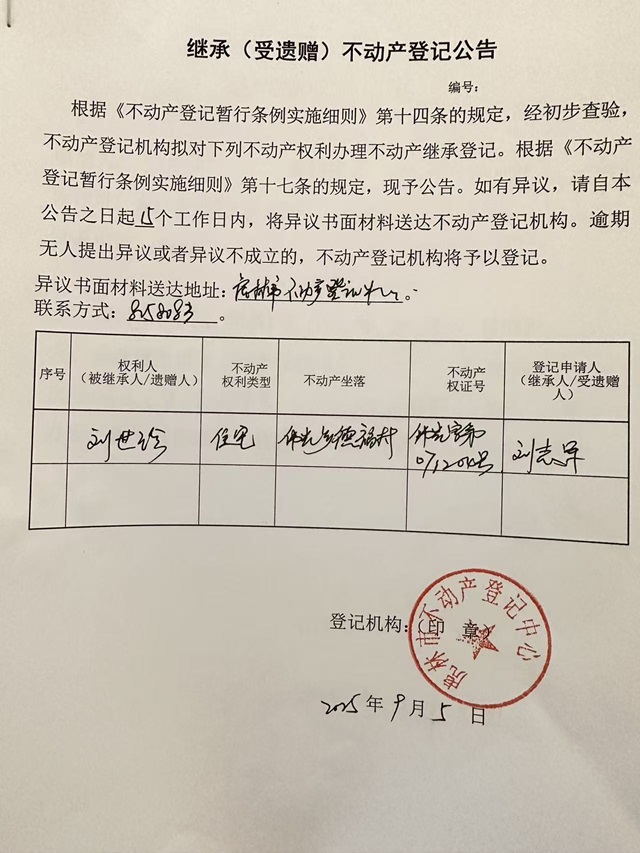 继承（受遗赠）不动产登记公告
编号：
根据《不动产登记暂行条例实施细则》第十四条的规定，经初步查验，
不动产登记机构拟对下列不动产权利办理不动产继承登记。根据《不动产
登记暂行条例实施细则》第十七条的规定，现予公告。如有异议，请自本
公告之日起15个工作日内，将异议书面材料送达不动产登记机构。逾期
无人提出异议或者异议不成立的，不动产登记机构将予以登记。
异议书面材料送达地址：虎林市不动产登记中心。
联系方式：8358083。
序号
权利人
（被继承人/遗赠人）
不动产
权利类型
不动产坐落
不动产
权证号
登记申请人
（继承人/受遗赠
人）
刘世珍
住宅
德福村
071204号
刘志军
登记机构：（印 章）
虎林市不动产登记中心
2025年9月5日